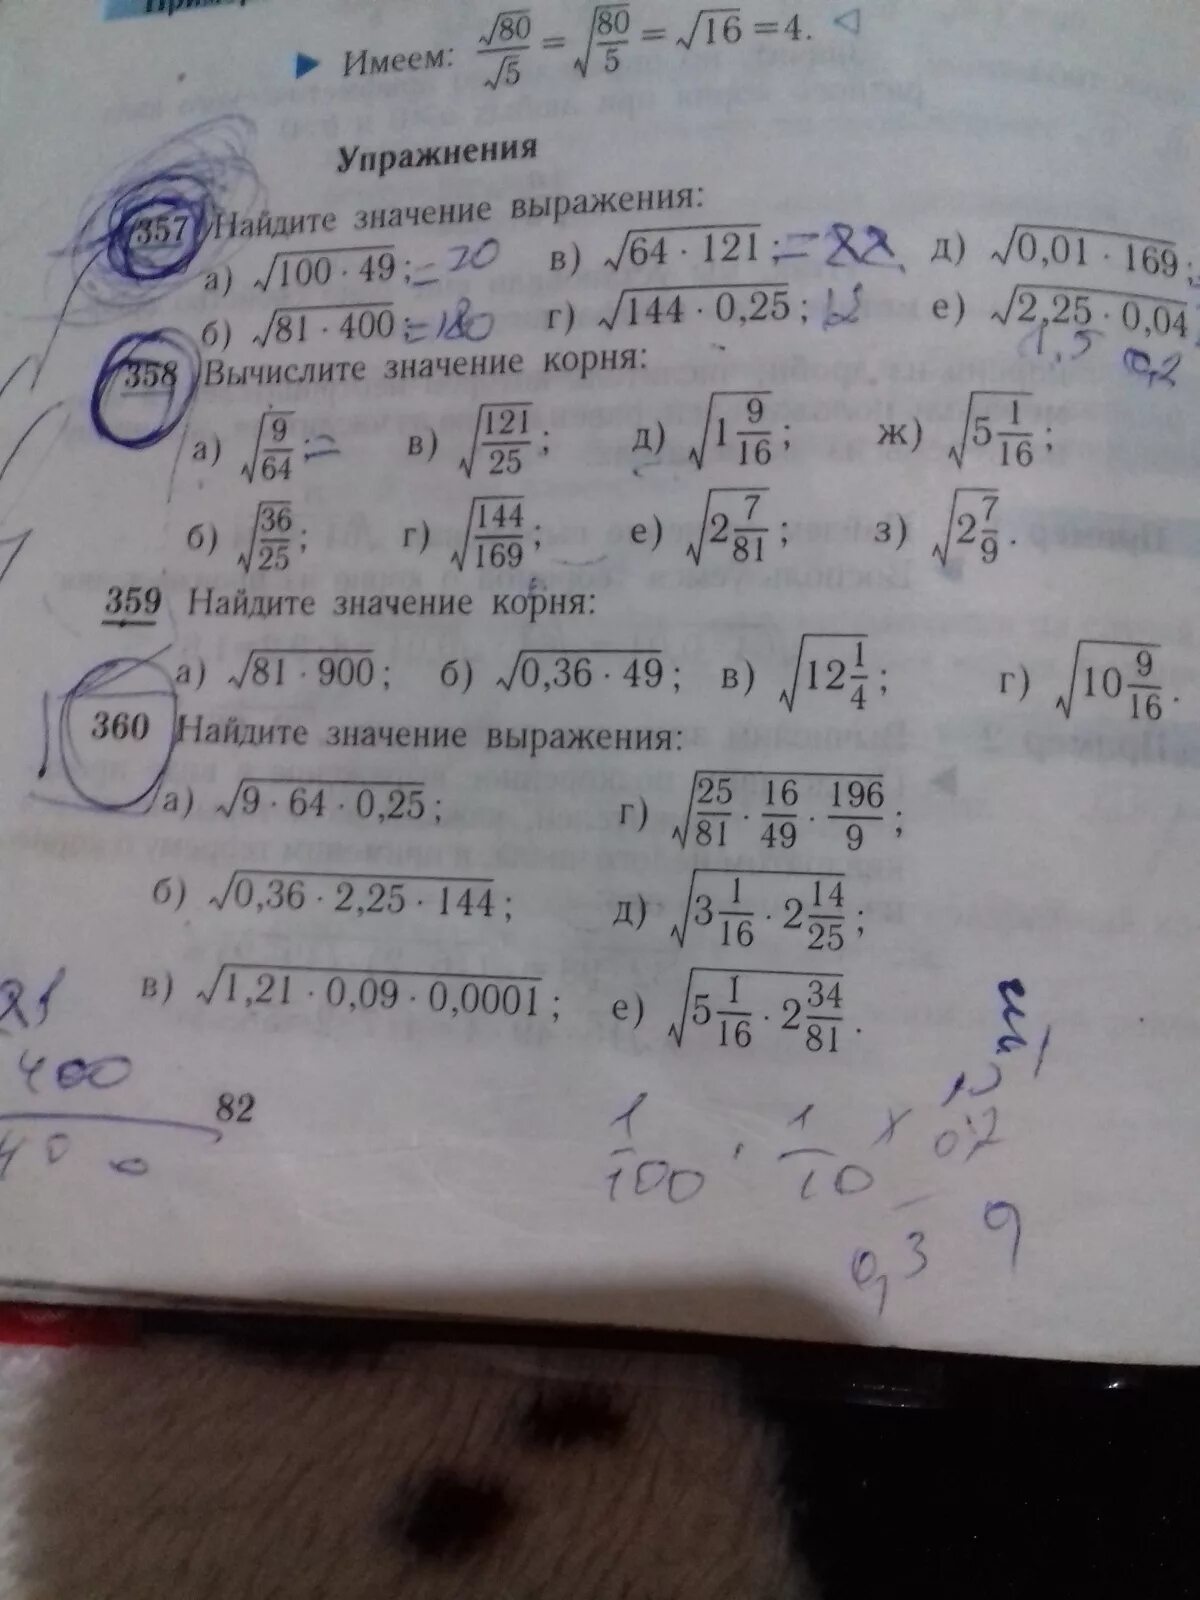 Имеем: √80/√5 = √(80/5) = √16 = 4.
Упражнения
357 Найдите значение выражения:
а) √(100 · 49); = 70 в) √(64 · 121); = 88 д) √(0,01 · 169);
б) √(81 · 400); = 180 г) √(144 · 0,25); е) √(2,25 · 0,04)
1,5 0,2
358 Вычислите значение корня:
а) √(9/64); = в) √(121/25); д) √(1 9/16); ж) √(5 1/16);
б) √(36/25); г) √(144/169); е) √(2 7/81); з) √(2 7/9).
359 Найдите значение корня:
а) √(81 · 900); б) √(0,36 · 49); в) √(12 1/4); г) √(10 9/16).
360 Найдите значение выражения:
а) √(9 · 64 · 0,25); г) √(25/81 · 16/49 · 196/9);
б) √(0,36 · 2,25 · 144); д) √(3 1/16 · 2 14/25);
в) √(1,21 · 0,09 · 0,0001); е) √(5 1/16 · 2 34/81).
400
82
1/100 · 1/10 ×
0,3 9